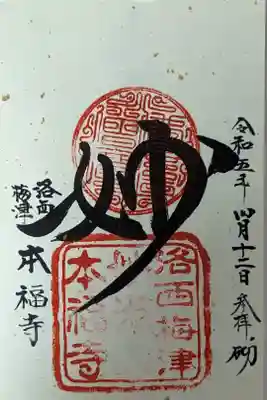 令和五年四月十二日参拝
妙
洛西
梅津
本福寺
洛西梅津
本福寺